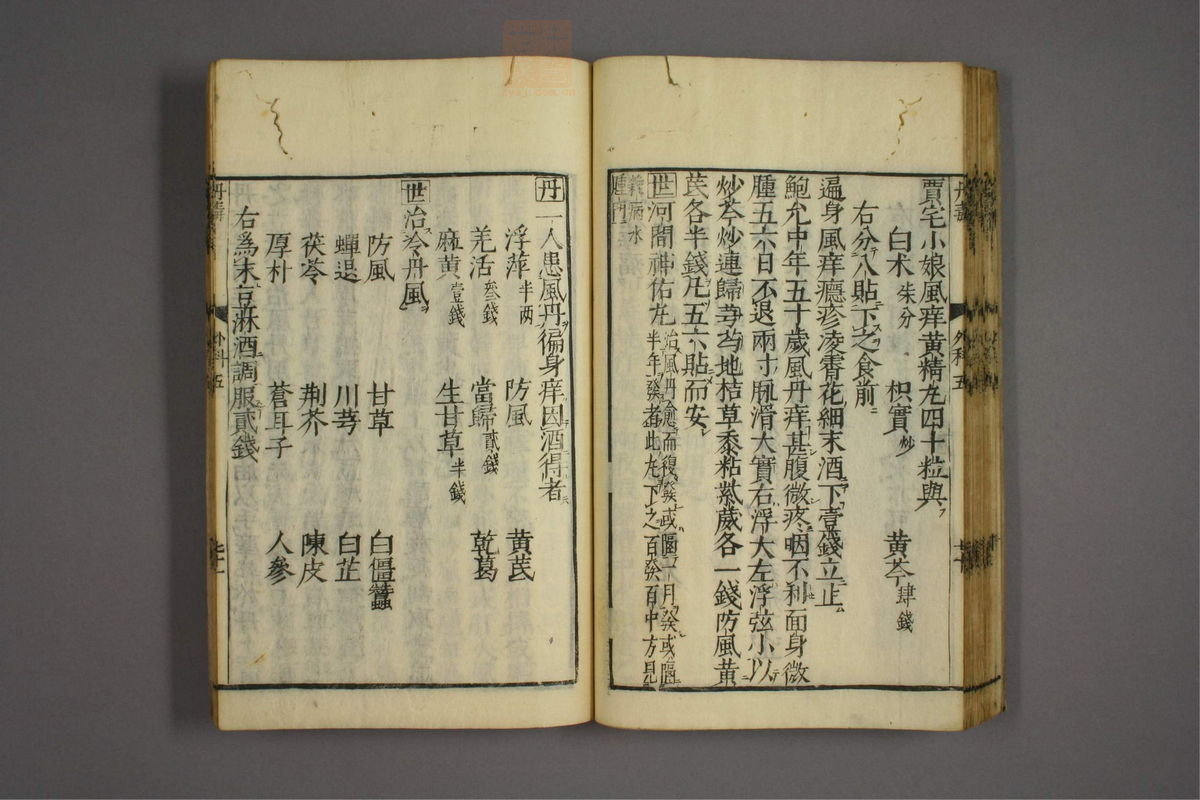 賈宅小娘風痒黄精丸四十粒與
白术 朱分 枳實 炒 黄芩 肆錢
右分八貼下之食前
遍身風痒癮疹凌霄花細末酒下壹錢立止
鮑允中年五十歲風丹痒甚腹微疼咽不利面身微
腫五六日不退兩寸脉滑大實右浮大左浮弦小以
炒芩炒連歸芎芍地桔草黍粘紫葳各一錢防風黄
芪各半錢凡五六貼而安
世 河間神佑丸 治風丹愈而復癹或隔一月癹或隔
半年癹者此丸下之百癹百中方見
腫門
丹 一人患風丹徧身痒因酒得者
浮萍 半两 防風 黄芪
羌活 叁錢 當歸 貳錢 乾葛
麻黄 壹錢 生甘草 半錢
世 治冷丹風
防風 甘草 白僵蠶
蟬退 川芎 白芷
茯苓 荆芥 陳皮
厚朴 蒼耳子 人參
右爲末豆淋酒調服貳錢
外科五
外科五